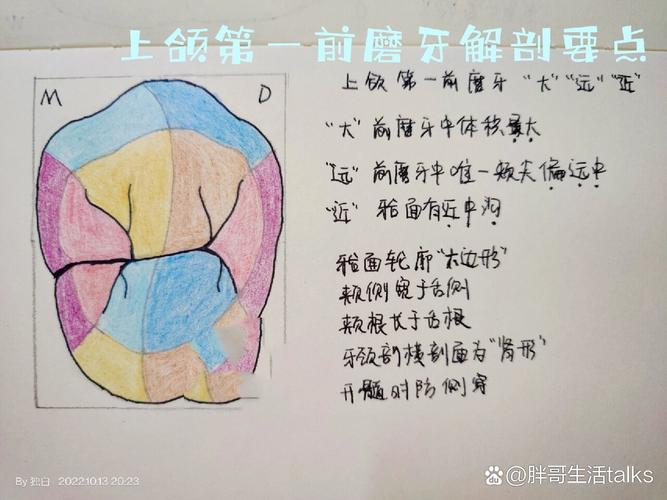 上颌第一前磨牙解剖要点
M D
上颌第一前磨牙 "大" "远" "近"
"大" 前磨牙中体积最大
"远" 前磨牙中唯一颊尖偏远中
"近" 𬌗面有近中沟
𬌗面轮廓"六边形"
颊侧宽于舌侧
颊根长于舌根
牙颈部横剖面为"肾形"
开髓时防侧穿
By 独白 20221013 20:23
胖哥生活talks